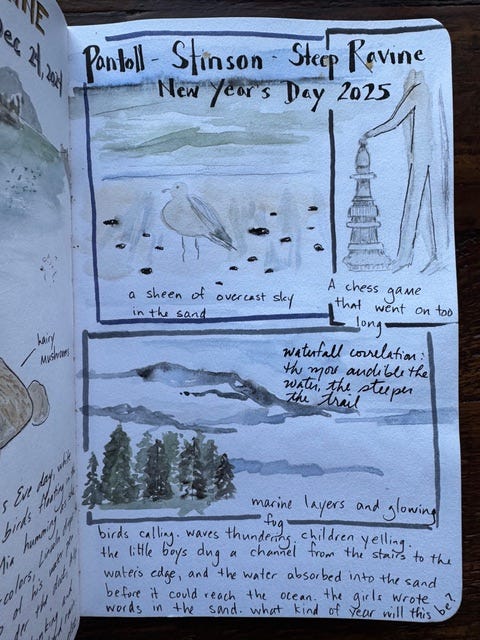 INE
Dec 29, 2024
hairy
mushrooms
s Eve day, while
birds floating in the
humming as she
colors,
at his water
Pantoll - Stinson - Steep Ravine
New Year's Day 2025
a sheen of overcast sky
in the sand
A chess game
that went on too
long
waterfall correlation:
the more audible the
water, the steeper
the trail
marine layers and glowing
fog
birds calling. waves thundering. children yelling.
the little boys dug a channel from the stairs to the
water's edge, and the water absorbed into the sand
before it could reach the ocean. the girls wrote
words in the sand. what kind of year will this be?